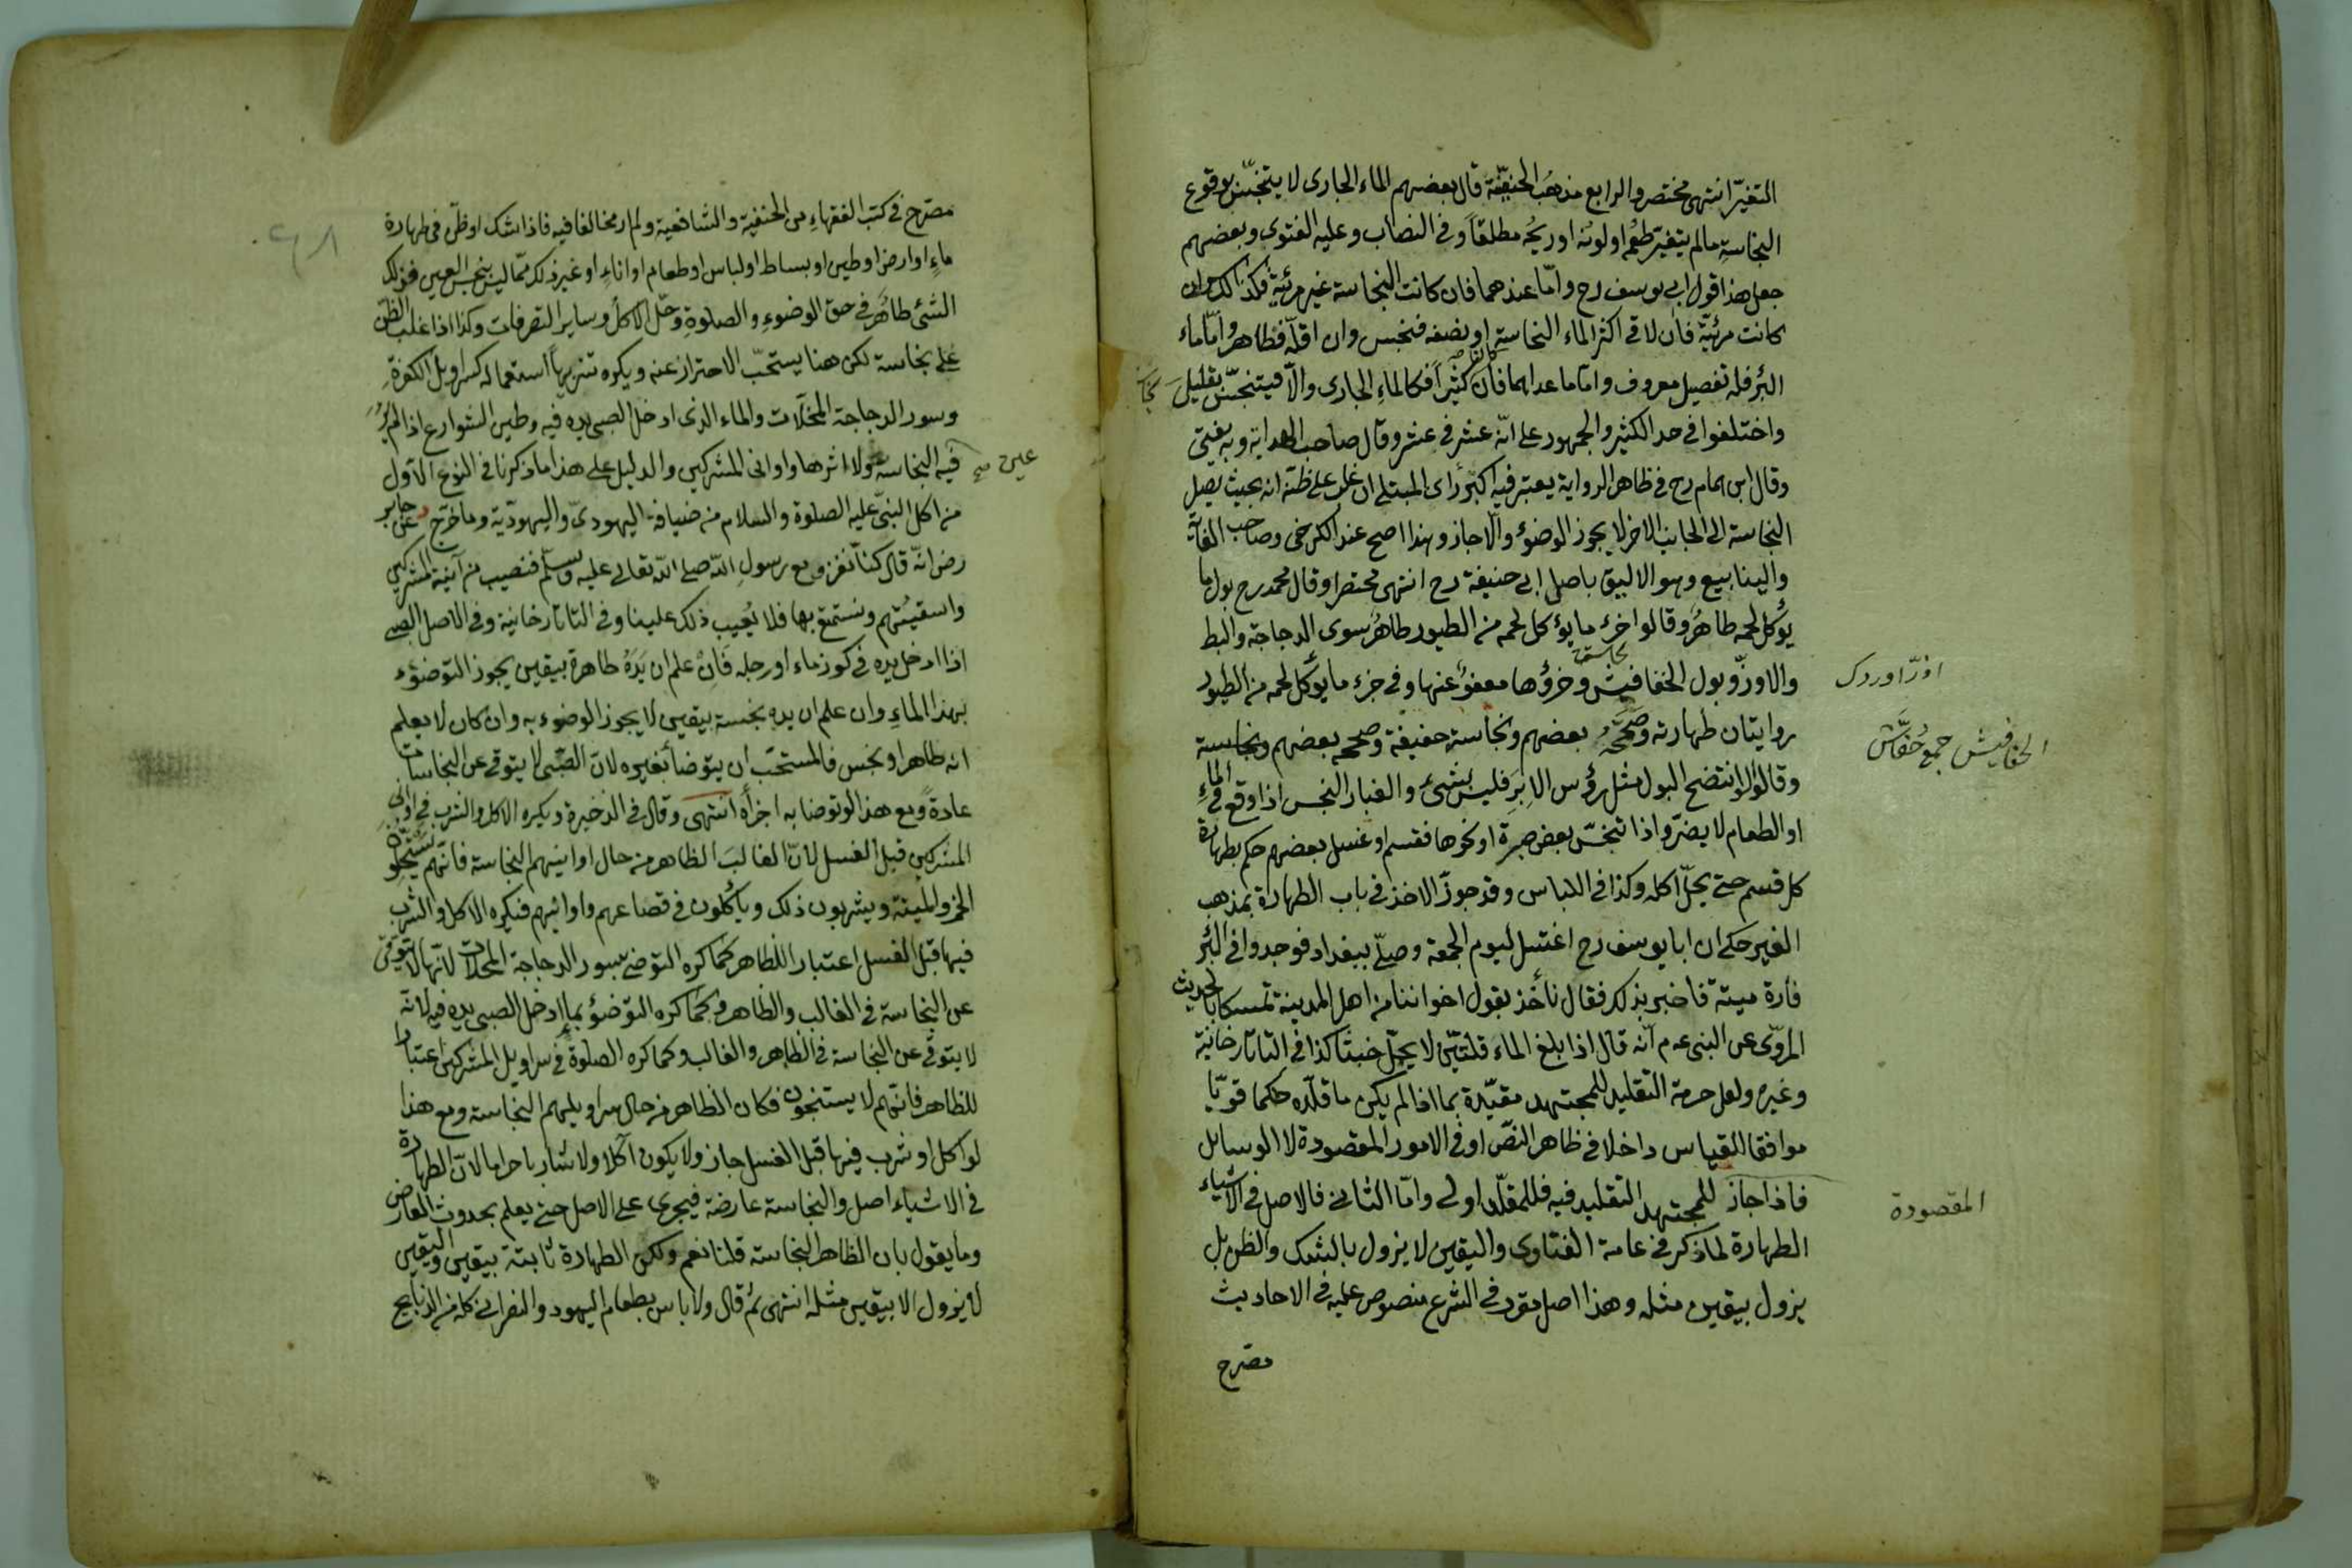 التغيّر انتهى مختصر والرابع مذهب الحنفيّة قال بعضهم الماء الجارى لا يتنجّس بوقوع
النجاسة مالم يتغيّر طعمه او لونه او ريحه مطلقاً وفى النصاب وعليه الفتوى وبعضهم
جعل هذا قول ابى يوسف رح وامّا عندهما فان كانت النجاسة غير مرئيّة فكذلك وان
كانت مرئيّة فان لاقى اكثر الماء النجاسة او نصفه فنجس وان اقلّه فطاهر وامّا ماء
البئر فله تفصيل معروف وامّا ما عداهما فان كان كثيراً فكالماء الجارى والّا فيتنجّس بقليل نجاسة
واختلفوا فى حد الكثير والجمهور على انّه عشر فى عشر وقال صاحب الهداية وبه يفتى
وقال ابن همام رح فى ظاهر الرواية يعتبر فيه اكبر رأى المبتلى ان غلب على ظنّه انه بحيث يصل
النجاسة الى الجانب الاخر لا يجوز الوضوء والّا جاز وهذا اصح عند الكرخى وصاحب الغاية
والينابيع وهو الاليق باصل ابى حنيفة رح انتهى مختصرا وقال محمد رح بول ما
يؤكل لحمه طاهر وقالوا خرء ما يؤكل لحمه من الطيور طاهر سوى الدجاجة والبط
والاوزّ وبول الخفافيش وخرؤها معفوّ عنها وفى خرء ما يؤكل لحمه من الطيور
اوزّ اوردك
روايتان طهارته وصحّحه بعضهم ونجاسته خفيفة وصححه بعضهم ونجاسته
الخفافيش جمع خفّاش
وقالوا لو انتضح البول مثل رؤس الابر فليس بشئ والغبار النجس اذا وقع فى الماء
او الطعام لا يضرّ واذا تنجّس بعض صبرة او نحوها فقسم او غسل بعضهم حكم بطهارة
كل قسم حتى يحلّ اكله وكذا فى اللباس وقد جوّز الاخذ فى باب الطهارة بمذهب
الغير حكى ان ابا يوسف رح اغتسل ليوم الجمعة وصلّى ببغداد فوجدوا فى البئر
فارة ميتة فاخبر بذلك فقال نأخذ بقول اخواننا من اهل المدينة تمسكا بالحديث
المروّى عن النبى عم انّه قال اذا بلغ الماء قلتين لا يحمل خبثا كذا فى التاتارخانية
وغيره ولعل حرمة التقليد للمجتهد مقيّدة بما اذا لم يكن ما قلّده حكما قويّا
موافقا للقياس داخلا فى ظاهر النصّ او فى الامور المقصودة لا الوسايل
فاذا جاز للمجتهد التقليد فيه فللمقلّد اولى وامّا الثانى فالاصل فى الاشياء
المقصودة
الطهارة لما ذكر فى عامة الفتاوى واليقين لا يزول بالشك والظن بل
يزول بيقين مثله وهذا اصل مقرر فى الشرع منصوص عليه فى الاحاديث
مصرح
مصرّح فى كتب الفقهاء من الحنفية والشافعية ولم ار مخالفا فيه فاذا شك او ظنّ فى طهارة
ماء او ارض او طين او بساط او لباس او طعام او اناء او غير ذلك ممّا ليس بنجس العين فذلك
الشئ طاهر فى حق الوضوء والصلوة وحلّ الاكل وساير التصرفات وكذا اذا غلب الظن
على نجاسة لكن هنا يستحبّ الاحتراز عنه ويكره تنزيهاً استعماله كسراويل الكفرة
وسور الدجاجة المخلات والماء الذى ادخل الصبى يده فيه وطين الشوارع اذا لم ير
فيه النجاسة ولا اثرها واوانى المشركين والدليل على هذا ما ذكرنا فى النوع الاوّل
عين صح
من اكل النبىّ عليه الصلوة والسلام من ضيافة اليهودىّ واليهوديّة وما خرّج عن جابر
رض انّه قال كنا نغزو مع رسول اللّه صلى اللّه تعالى عليه وسلّم فنصيب من آنية المشركين
واسقيتهم ونستمتع بها فلا يُعيب ذلك علينا وفى التاتارخانية وفى الاصل الصبى
اذا ادخل يده فى كوز ماء او رجله فان علم ان يده طاهرة بيقين يجوز التوضؤ
بهذا الماء وان علم ان يده نجسة بيقين لا يجوز الوضوء به وان كان لا يعلم
انه طاهر او نجس فالمستحب ان يتوضأ بغيره لان الصبى لا يتوقى عن النجاسات
عادة ومع هذا لو توضا به اجزأه انتهى وقال فى الذخيرة ويكره الاكل والشرب فى اوانى
المشركين قبل الغسل لانّ الغالب الظاهر من حال اوانيهم النجاسة فانّهم يستحلّون
الخمر والميتة ويشربون ذلك ويأكلون فى قصاعهم واوانيهم فيكره الاكل والشرب
فيها قبل الغسل اعتبارا للظاهر كما كره التوضى بسور الدجاجة المخلات لانّها لا تتوقّى
عن النجاسة فى الغالب والظاهر وكما كره التوضؤ بماء ادخل الصبى يده فيه لانه
لا يتوقى عن النجاسة فى الظاهر والغالب وكما كره الصلوة فى سراويل المشركين اعتبارا
للظاهر فانّهم لا يستنجون فكان الظاهر من حال سراويلهم النجاسة ومع هذا
لو اكل او شرب فيها قبل الغسل جاز ولا يكون آكلا ولا شاربا حراما لانّ الطهارة
فى الاشياء اصل والنجاسة عارضة فيجرى على الاصل حتى يعلم بحدوث العارض
وما يقول بان الظاهر النجاسة قلنا نعم ولكن الطهارة ثابتة بيقين واليقين
لا يزول الا بيقين مثله انتهى ثم قال ولا باس بطعام اليهود والنصرانى كله من الذبايح